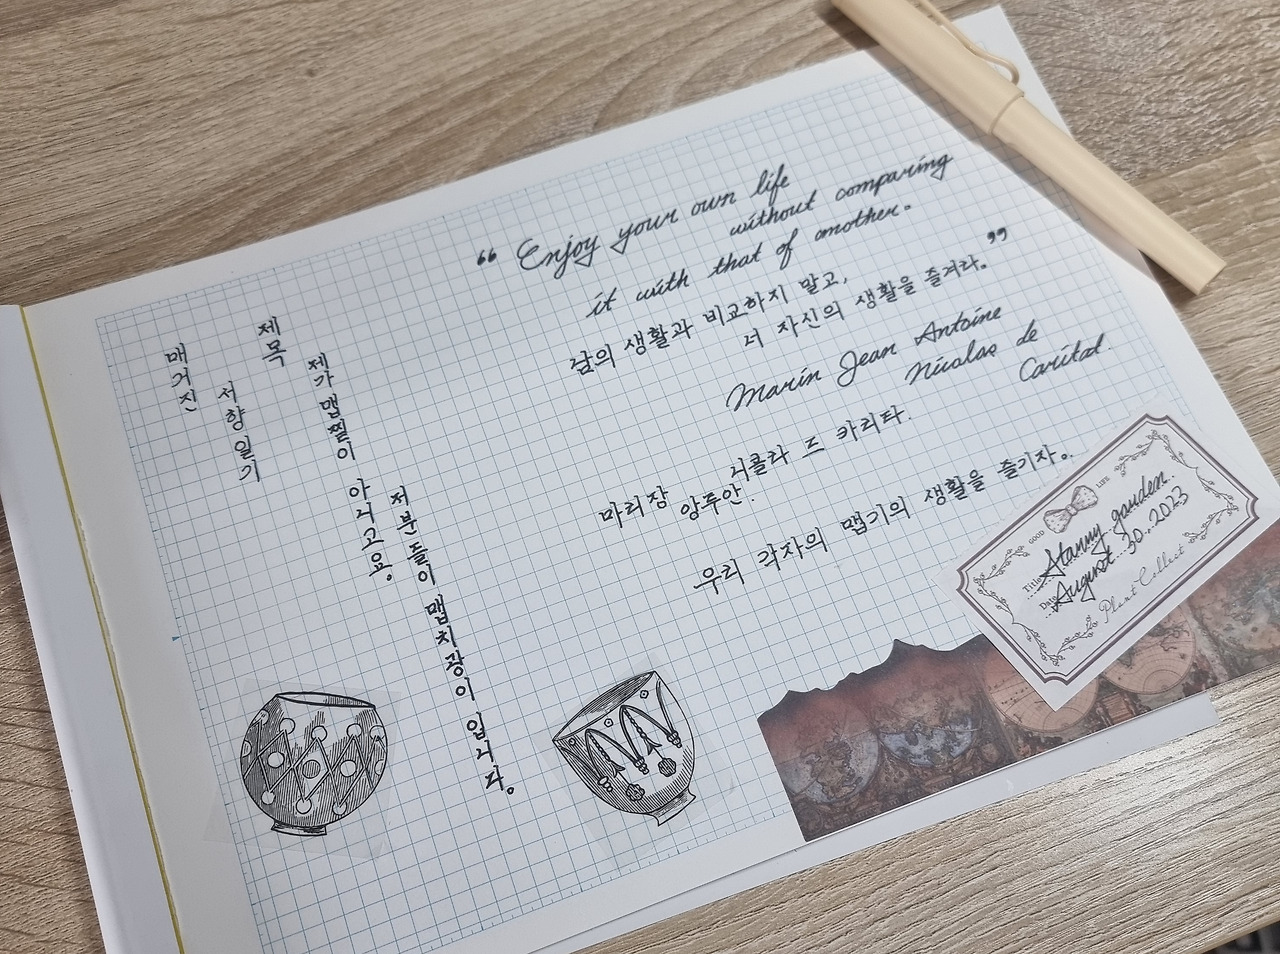 매거진
서향일기
제목
제가 맵찔이 아니고요。
저분들이 맵치광이 입니다。
“ Enjoy your own life
without comparing
it with that of another. ”
남의 생활과 비교하지 말고,
너 자신의 생활을 즐겨라。
Marin Jean Antoine
Nicolas de
Caritat.
니콜라 드 카리타.
마리장 앙투안.
우리 각자의 맵기의 생활을 즐기자。
GOOD LIFE
Title Stanny garden.
Date August 30. 2023
Plant Collect